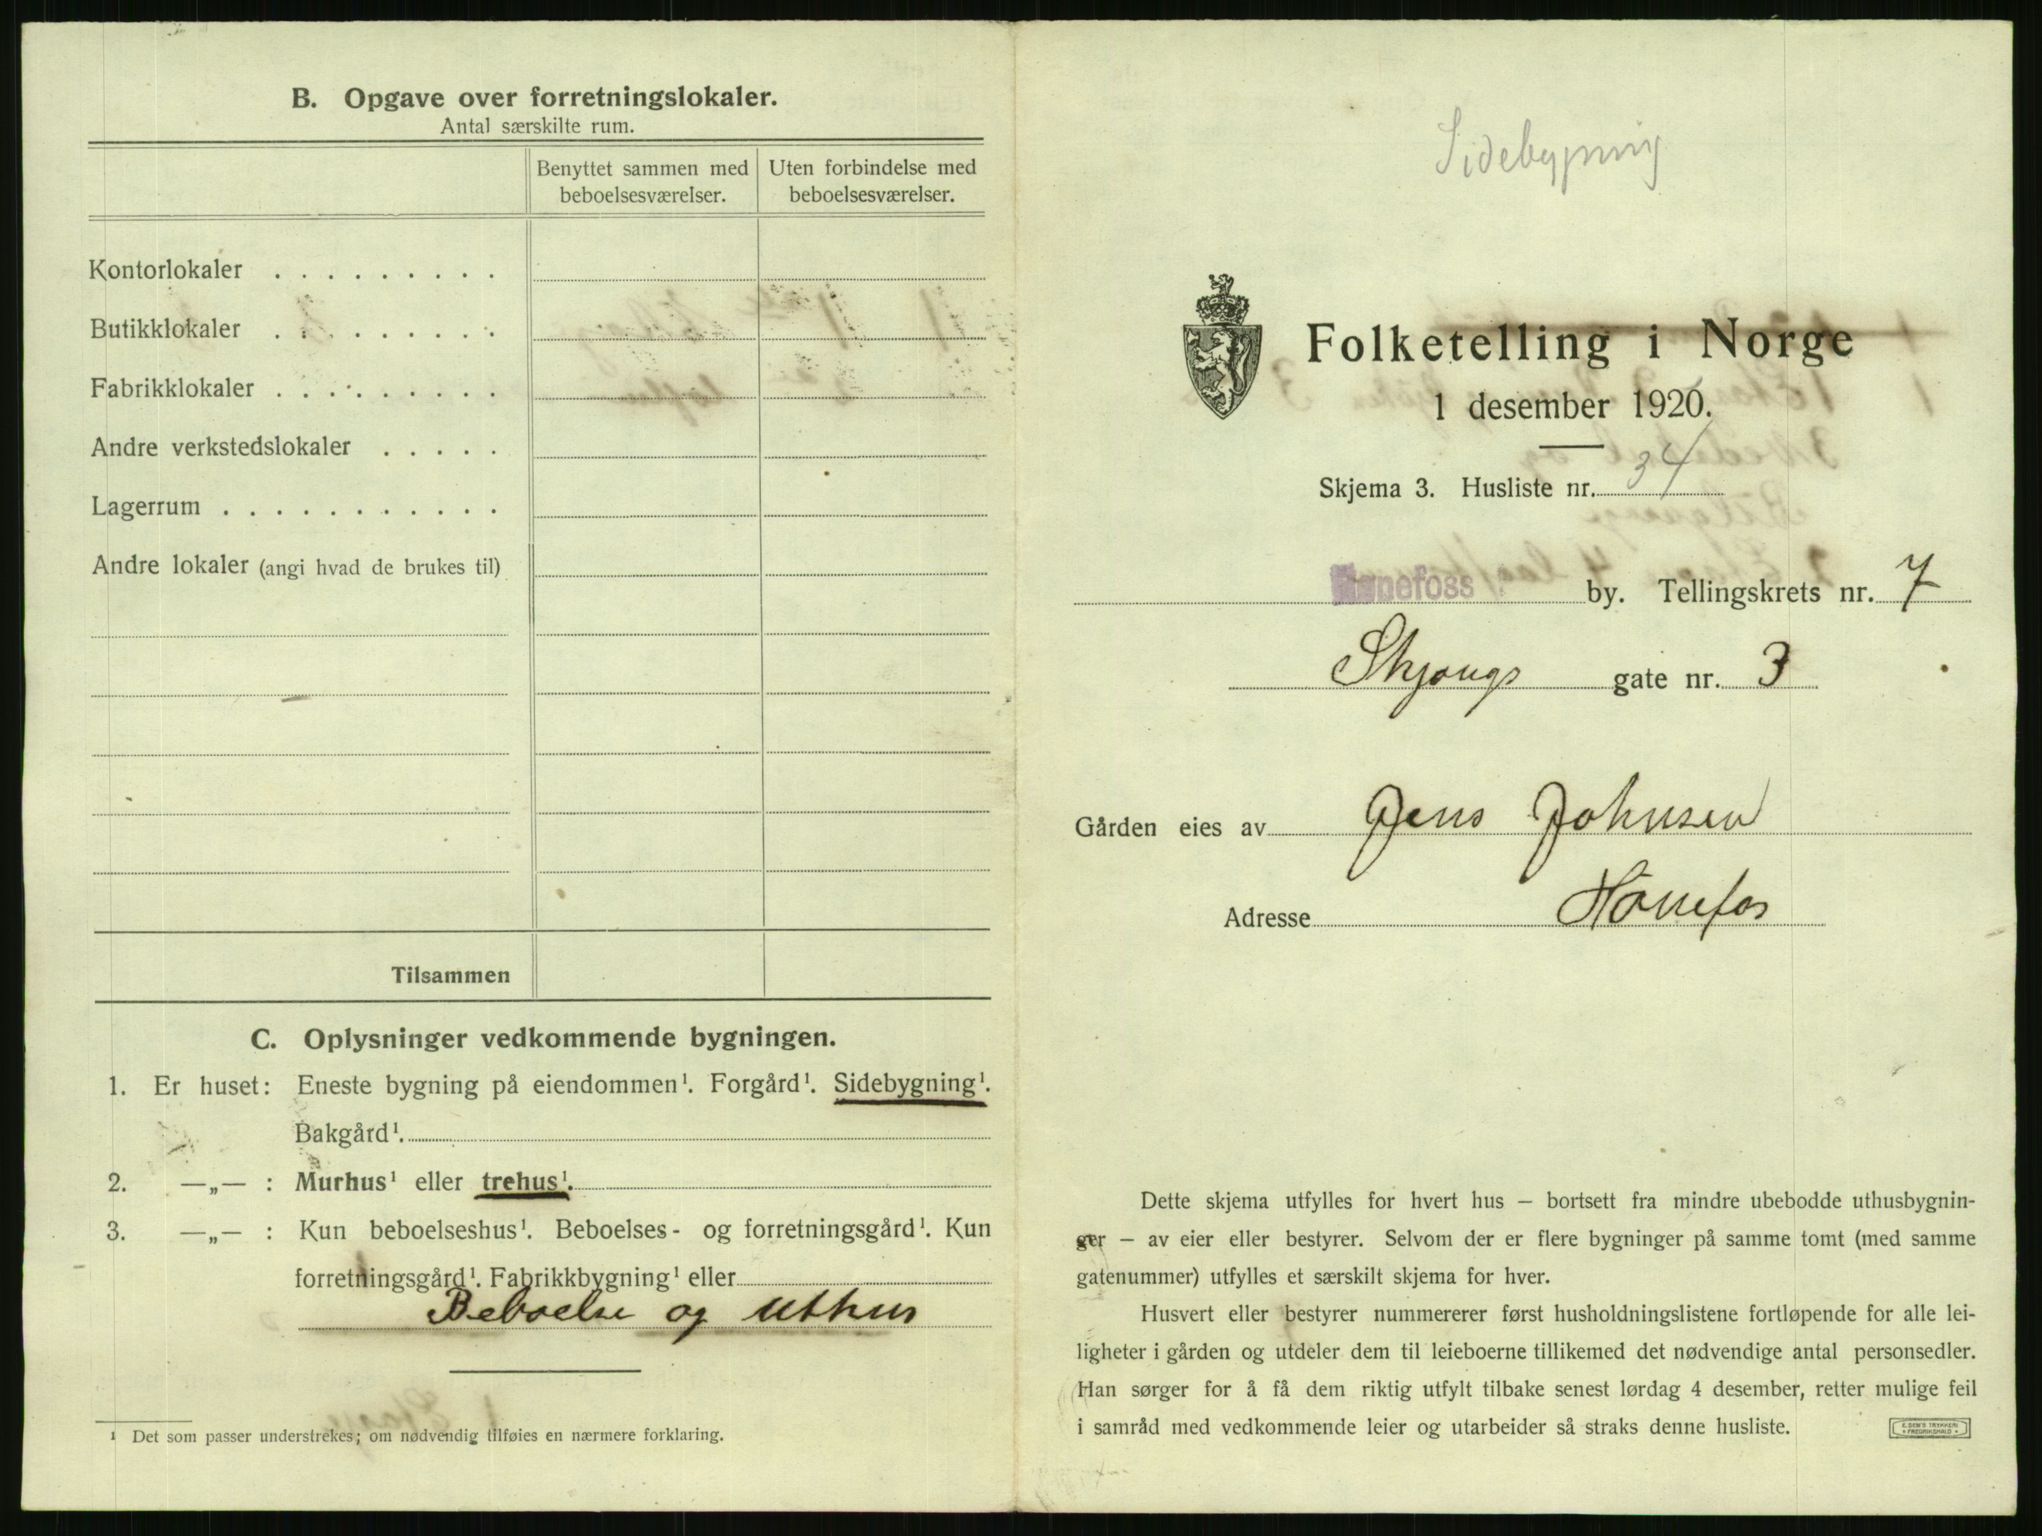 B. Opgave over forretningslokaler.
Antal særskilte rum.
Benyttet sammen med beboelsesværelser.
Uten forbindelse med beboelsesværelser.
Kontorlokaler . . . . . . . . .
Butikklokaler . . . . . . . . .
Fabrikklokaler . . . . . . . . .
Andre verkstedslokaler . . . . .
Lagerrum . . . . . . . . . . .
Andre lokaler (angi hvad de brukes til)
Tilsammen
C. Oplysninger vedkommende bygningen.
1. Er huset: Eneste bygning på eiendommen¹. Forgård¹. Sidebygning¹.
Bakgård¹.
2. —„— : Murhus¹ eller trehus¹.
3. —„— : Kun beboelseshus¹. Beboelses- og forretningsgård¹. Kun
forretningsgård¹. Fabrikkbygning¹ eller
Beboelse og Uthus
¹ Det som passer understrekes; om nødvendig tilføies en nærmere forklaring.
Sidebygning
Folketelling i Norge
1 desember 1920.
Skjema 3. Husliste nr. 34
Hønefoss by. Tellingskrets nr. 7
Skjongs gate nr. 3
Gården eies av Jens Johnsen
Adresse Hønefos
Dette skjema utfylles for hvert hus – bortsett fra mindre ubebodde uthusbygnin-
ger – av eier eller bestyrer. Selvom der er flere bygninger på samme tomt (med samme
gatenummer) utfylles et særskilt skjema for hver.
Husvert eller bestyrer nummererer først husholdningslistene fortløpende for alle lei-
ligheter i gården og utdeler dem til leieboerne tillikemed det nødvendige antal personsedler.
Han sørger for å få dem riktig utfylt tilbake senest lørdag 4 desember, retter mulige feil
i samråd med vedkommende leier og utarbeider så straks denne husliste.